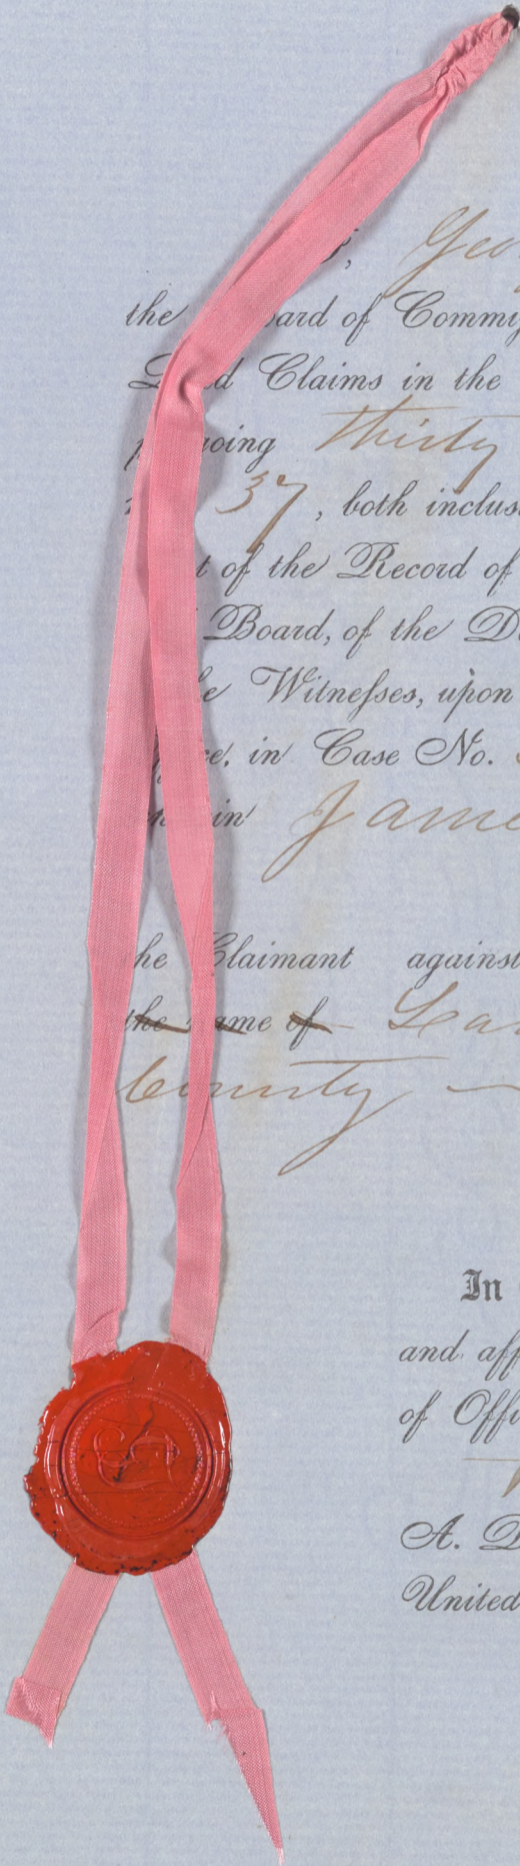 Geo
the ard of Commis
L d Claims in the
going thirty
37, both inclus
t of the Record of
Board, of the D
e Witnesses, upon
ce, in Case No.
in Jame
he Claimant against
the ame of
County
In
and aff
of Offi
A. D
United